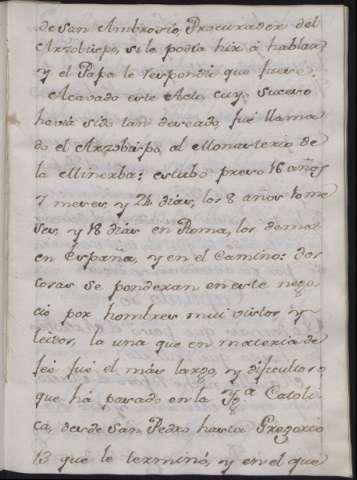 de San Ambrosio, Procurador del
Arzobispo, si le podia hir á hablar,
y el Papa le respondió que fuere.
Acavado este Acto, cuyo suceso
havia sido tan deseado, fué llama
do el Arzobispo, al Monasterio de
la Minerba: estubo preso 16 años
7 meses, y 24 dias, los 8 años
ses, y 18 dias en Roma, los demas
en España, y en el Camino: dos
cosas se ponderan en este nego
cio por hombres mui vistos, y
leitos, la una que en materia de
feé fué el más largo, y dificultoso
que há pasado en la Yg.ª Catoli
ca, desde San Pedro hasta Gregorio
13 que le terminó, y en el que